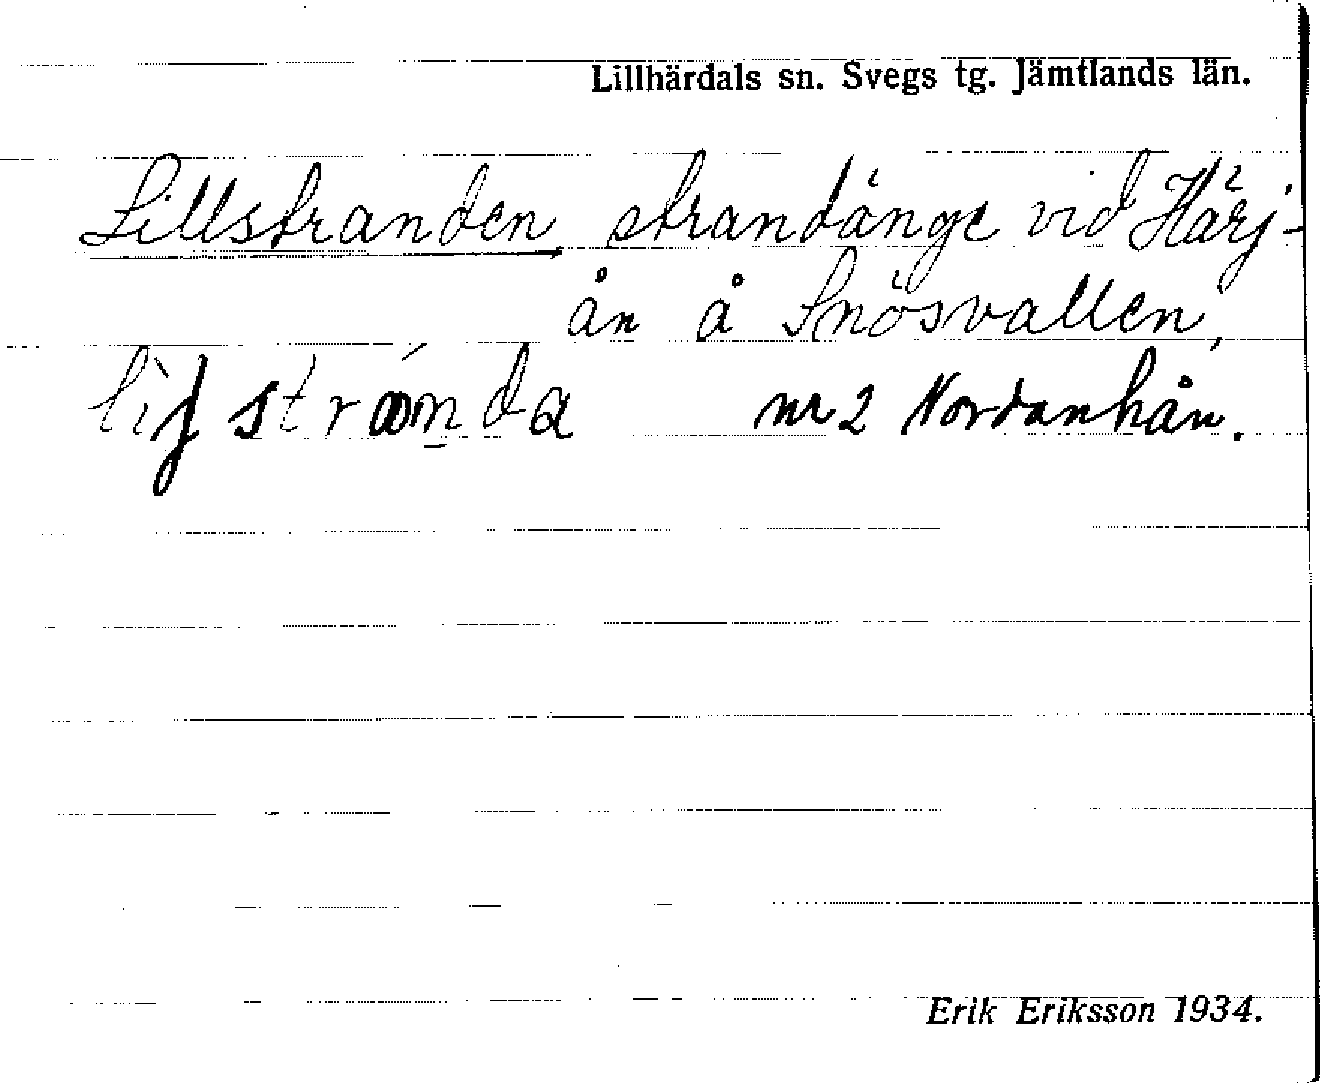 Lillhärdals sn. Svegs tg. Jämtlands län.
Lillstranden, strandänge vid Härj-
ån å Snösvallen,
nr 2 Nordanhån.
Erik Eriksson 1934.